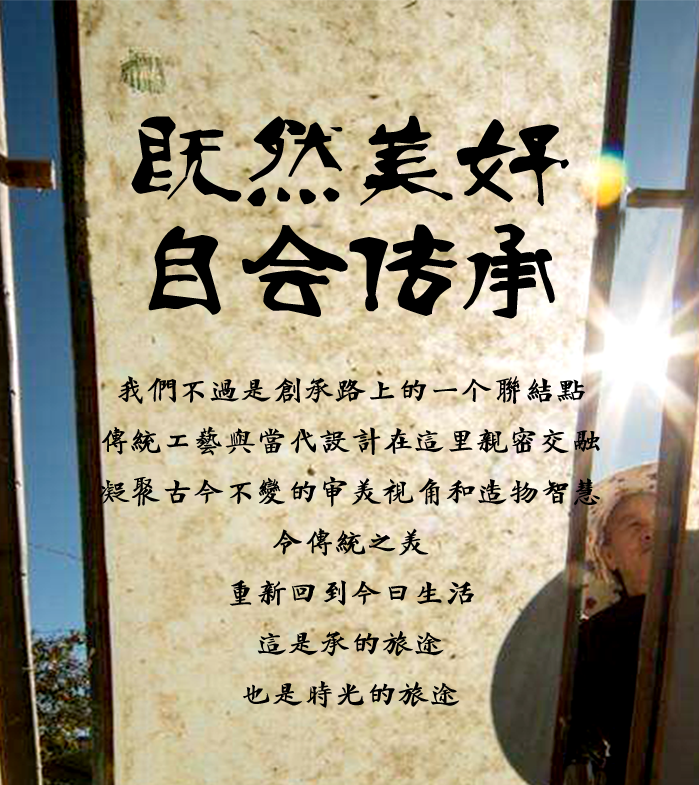 既然美好
自会传承
我們不過是創承路上的一个聯結點
傳統工藝與當代設計在這里親密交融
凝聚古今不變的审美視角和造物智慧
令傳統之美
重新回到今日生活
這是承的旅途
也是時光的旅途